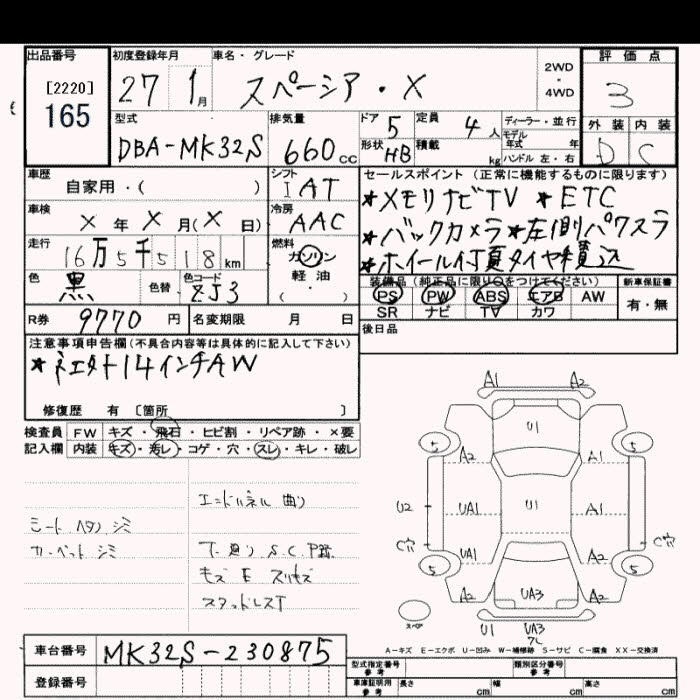 出品番号 初度登録年月 車名・グレード 評価点
[2220] 165
27 1月 スペーシア・X 2WD・4WD 3
型式 排気量 ドア 定員 ディーラー・並行 外装 内装
DBA-MK32S 660cc 5 4人 モデル年式 年式 D C
形状 HB 積載 kg ハンドル 左・右
車歴 シフト セールスポイント(正常に機能するものに限ります)
自家用・( ) IAT ★メモリナビTV ★ETC
車検 冷房 ★バックカメラ★左側パワスラ
X年X月(X日) AAC ★ホイール付夏タイヤ積込
走行 燃料
16万5千518km ガソリン
色 色替 色コード 軽油
黒 ZJ3 (・)
装備品(純正品に限り○をつけてください) 新車保証書
PS PW ABS エアB AW 有・無
SR ナビ TV カワ
R券 9770円 名変期限 月 日 後日品
注意事項申告欄(不具合内容等は具体的に記入して下さい)
14インチAW
修復歴 有 [箇所 ]
検査員 FW キズ・飛石・ヒビ割・リペア跡・×要
記入欄 内装 キズ・汚レ・コゲ・穴・スレ・キレ・破レ
エンドパネル 曲り
シート ハタン シミ
カーペット シミ 下廻り S.C.P跡
キズ E スリキズ
スタッドレスT
A1 A2
U1
5 5
A2 A1
U2 UA1 U1 A1
C穴 UA1 A2 C穴
5 5
A2 UA3 A2
スペア U1 UA3
A-キズ E-エクボ U-凹み W-補修跡 S-サビ C-腐食 XX-交換済
車台番号 MK32S-230875
登録番号
型式指定番号 参考 類別区分番号 参考
車庫証明用 参考 長さ cm 幅 cm 高さ cm